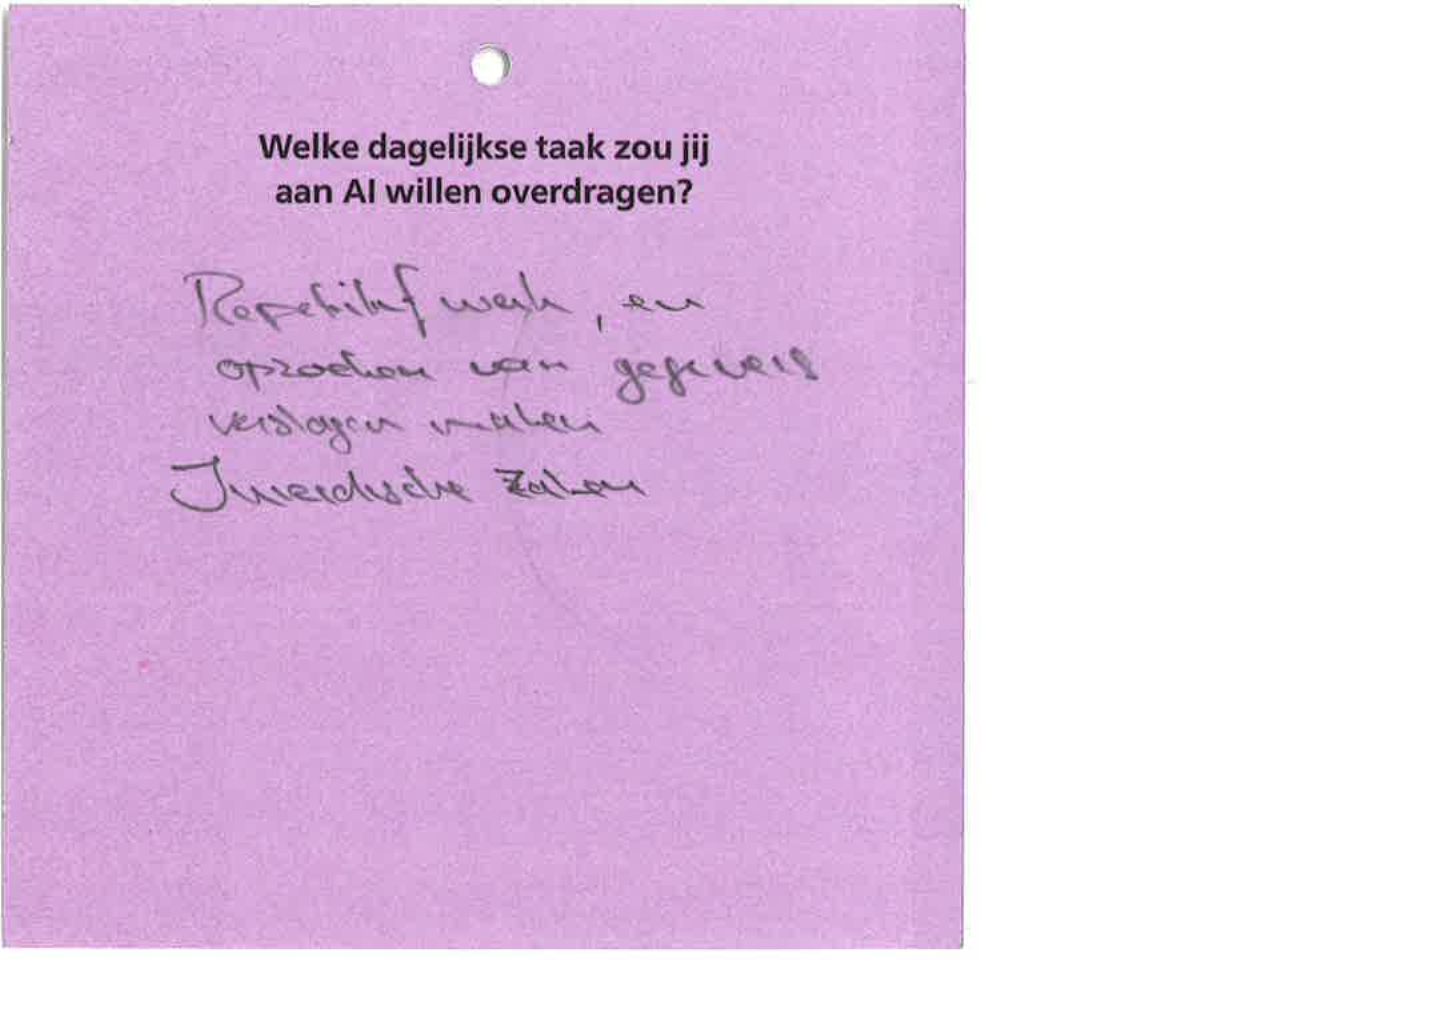 Welke dagelijkse taak zou jij
aan AI willen overdragen?
Repetitief werk, en
opzoeken van gegevens
verslagen maken
Juridische zaken